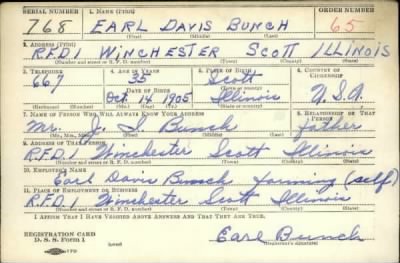 SERIAL NUMBER 1. NAME (Print) ORDER NUMBER
768 EARL DAVIS BUNCH 65
(First) (Middle) (Last)
2. ADDRESS (Print)
R.F.D.1 WINCHESTER SCOTT ILLINOIS
(Number and street or R. F. D. number) (Town) (County) (State)
3. TELEPHONE 4. AGE IN YEARS 5. PLACE OF BIRTH 6. COUNTRY OF CITIZENSHIP
667 35 Scott
DATE OF BIRTH (Town or county)
Oct. 14 1905 Illinois U.S.A.
(Exchange) (Number) (Mo.) (Day) (Yr.) (State or country)
7. NAME OF PERSON WHO WILL ALWAYS KNOW YOUR ADDRESS 8. RELATIONSHIP OF THAT PERSON
Mr. J. Bunch father
(Mr., Mrs., Miss) (First) (Middle) (Last)
9. ADDRESS OF THAT PERSON
R.F.D.1 Winchester Scott Illinois
(Number and street or R. F. D. number) (Town) (County) (State)
10. EMPLOYER'S NAME
Earl Davis Bunch farming (self)
11. PLACE OF EMPLOYMENT OR BUSINESS
R.F.D.1 Winchester Scott Illinois
(Number and street or R. F. D. number) (Town) (County) (State)
I AFFIRM THAT I HAVE VERIFIED ABOVE ANSWERS AND THAT THEY ARE TRUE.
REGISTRATION CARD
D. S. S. Form 1 (over) Earl Bunch
(Registrant's signature)